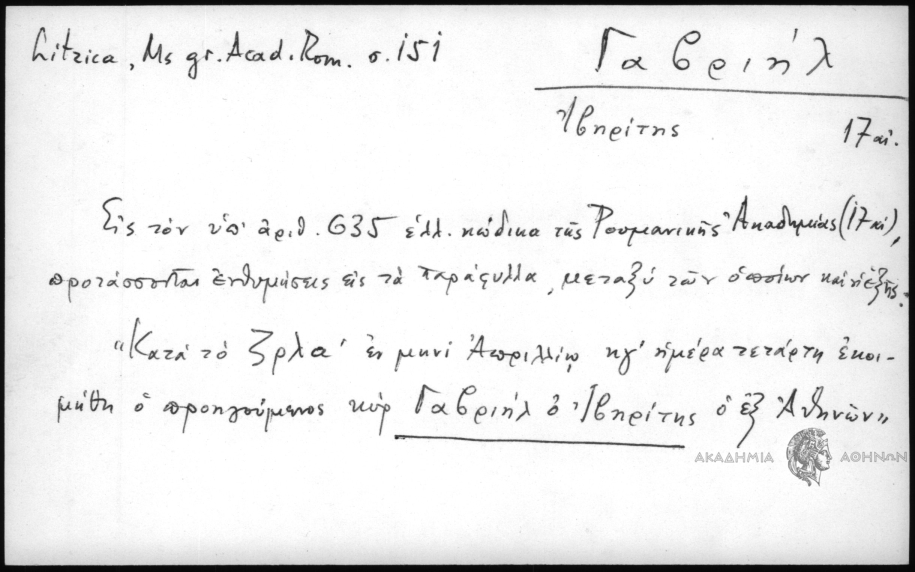 Litzica, Ms gr. Acad. Rom. σ. 151
Γαβριήλ
Ἰβηρίτης 17 αἰ.
Εἰς τὸν ὑπ' ἀριθ. 635 ἑλλ. κώδικα τῆς Ρουμανικῆς Ἀκαδημίας (17 αἰ),
προτάσσονται ἐνθυμήσεις εἰς τὰ παράφυλλα, μεταξὺ τῶν ὁποίων καὶ ἡ ἑξῆς.
"Κατὰ τὸ ζρλα' ἐν μηνὶ Ἀπριλλίῳ κγ' ἡμέρα τετάρτη ἐκοι-
μήθη ὁ προηγούμενος κὺρ Γαβριὴλ ὁ Ἰβηρίτης ὁ ἐξ Ἀθηνῶν"
ΑΚΑΔΗΜΙΑ ΑΘΗΝΩΝ